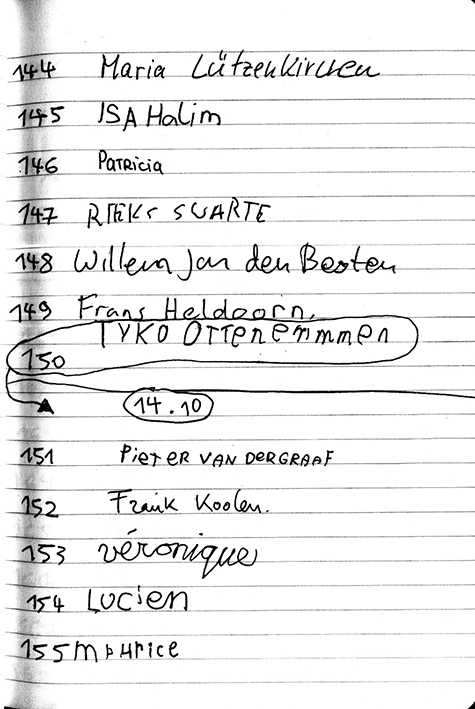 144 Maria Lützenkirchen
145 ISA Halim
146 PATRICIA
147 RIEKS SWARTE
148 Willem Jan den Besten
149 Frans Heldoorn.
150 TYKO OTTenemmmen
14.10
151 PIETER VAN DER GRAAF
152 Frank Koolen.
153 véronique
154 LUCIEN
155 maurice